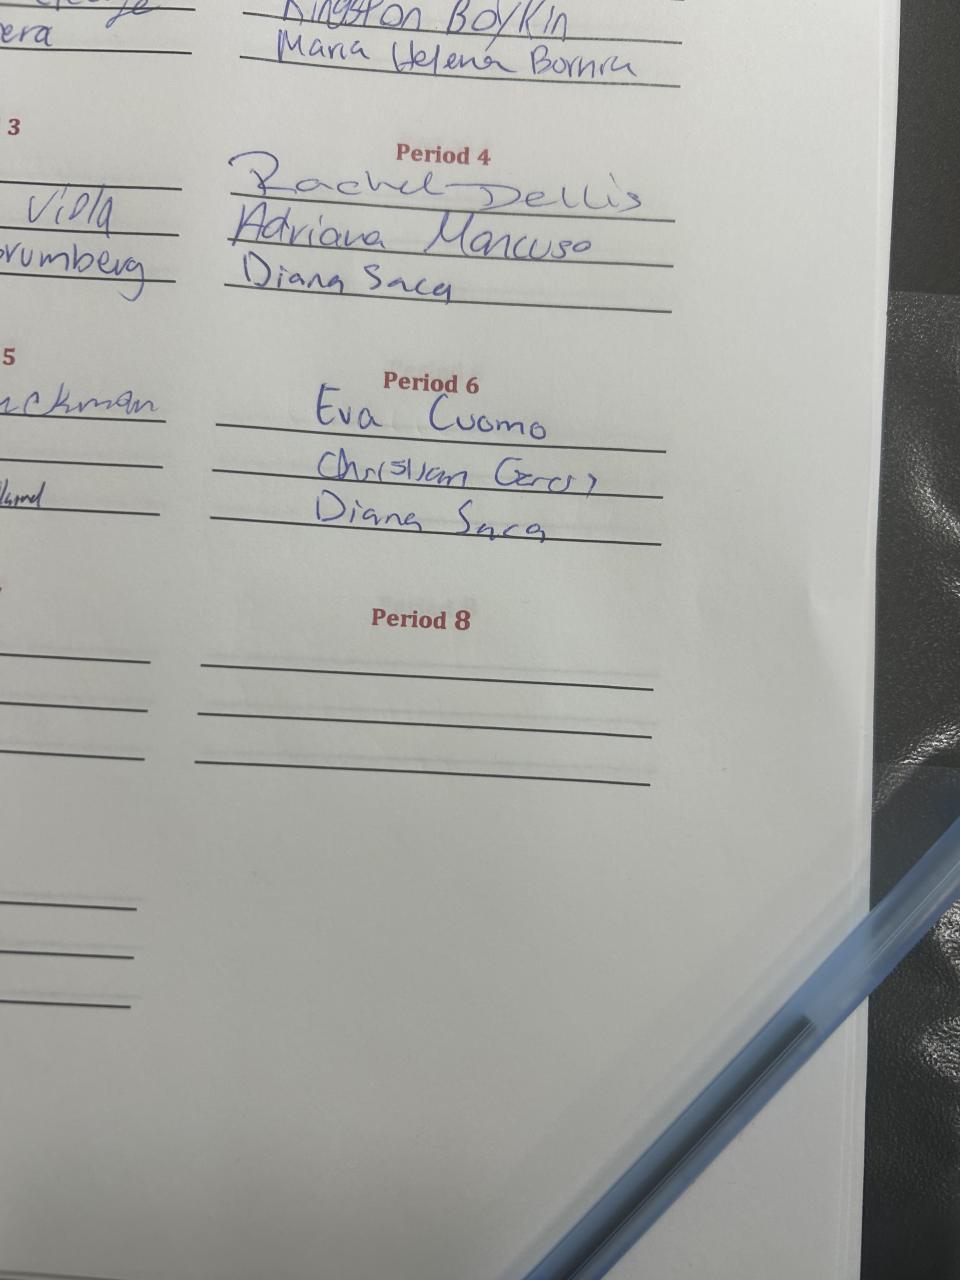 Kingston Boykin
era
Maria Helena
3
Viola
rumberg
Period 4
Rachel Dellis
Adriana Mancuso
Diana Saca
5
ckman
Period 6
Eva Cuomo
Christian
Diana Saca
Period 8